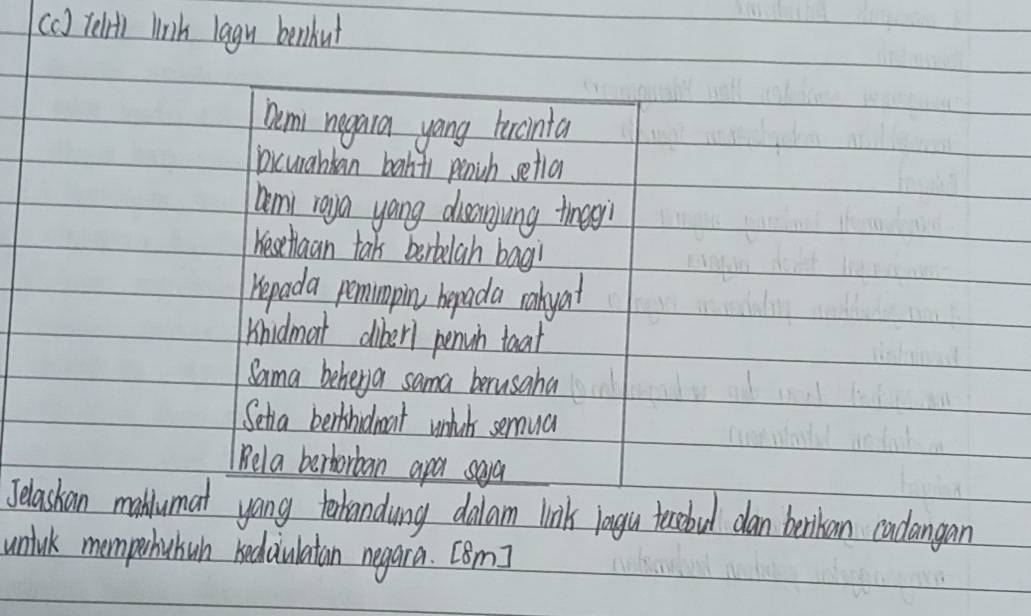 (c) Teliti lirik lagu berikut
Demi negara yang tercinta
Dicurahkan bakti penuh setia
Demi raja yang disanjung tinggi
Kesetiaan tak berbelah bagi
Kepada pemimpin kepada rakyat
Khidmat diberi penuh taat
Sama bekerja sama berusaha
Setia berkhidmat untuk semua
Rela berkorban apa saja
Jelaskan maklumat yang terkandung dalam lirik lagu tersebut dan berikan cadangan
untuk memperkukuh kedaulatan negara. [8m]